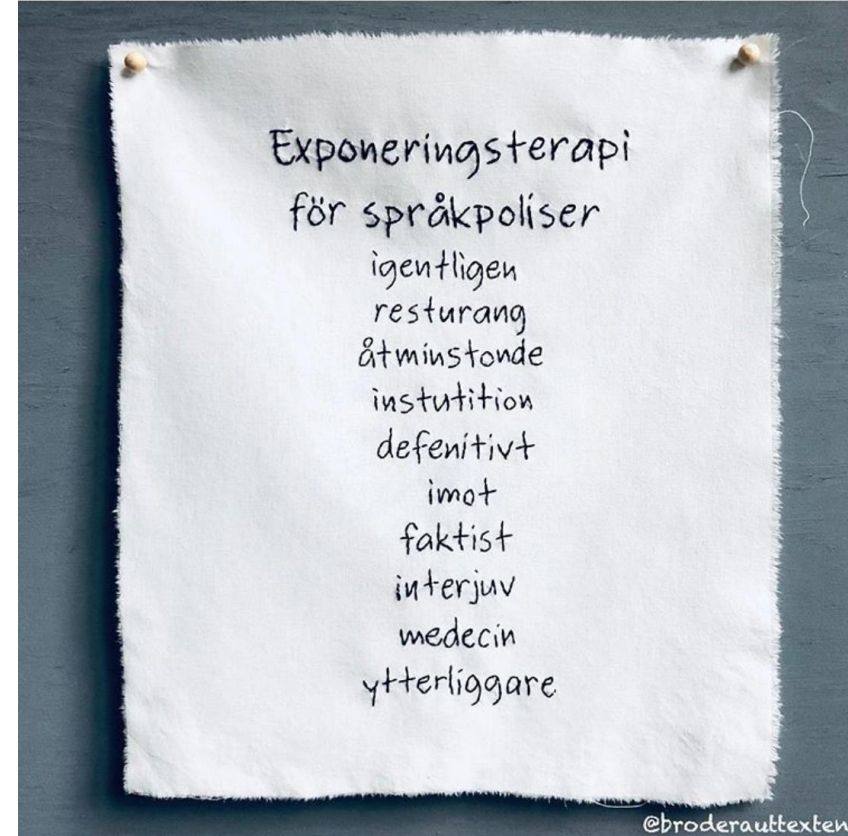 Exponeringsterapi
för språkpoliser
igentligen
resturang
åtminstonde
instutition
defenitivt
imot
faktist
interjuv
medecin
ytterliggare
@broderauttexten